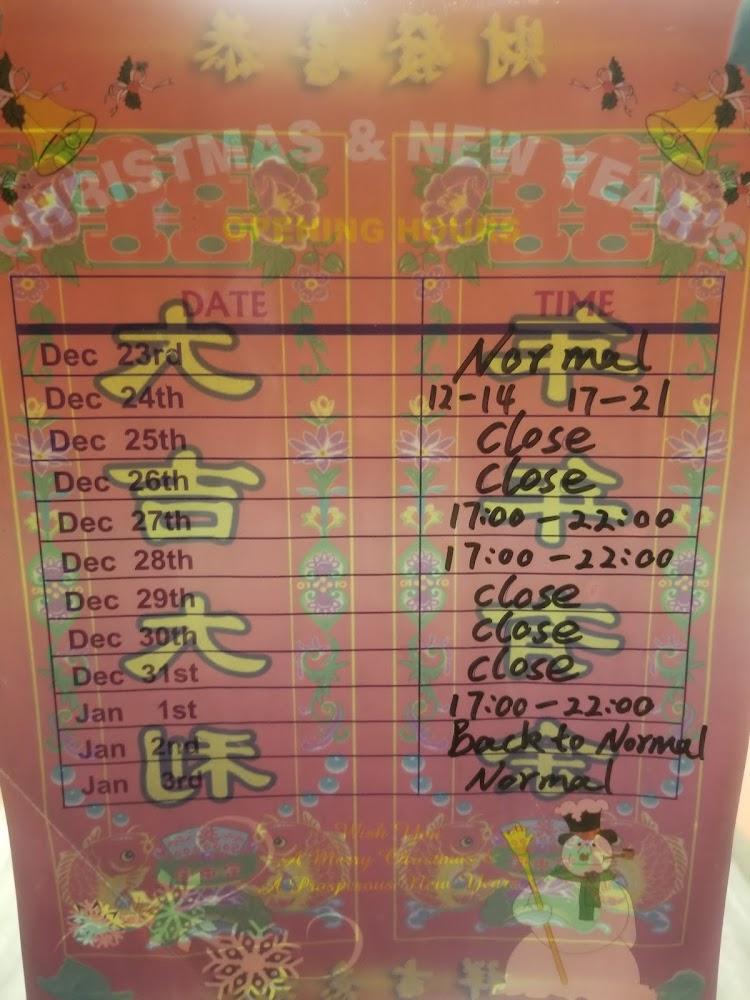 恭喜發財
CHRISTMAS & NEW YEAR'S
OPENING HOURS
DATE TIME
Dec 23rd Normal
Dec 24th 12-14 17-21
Dec 25th Close
Dec 26th Close
Dec 27th 17:00-22:00
Dec 28th 17:00-22:00
Dec 29th Close
Dec 30th Close
Dec 31st Close
Jan 1st 17:00-22:00
Jan 2nd Back to Normal
Jan 3rd Normal
大吉大利
Wish You
A Merry Christmas &
A Prosperous New Year